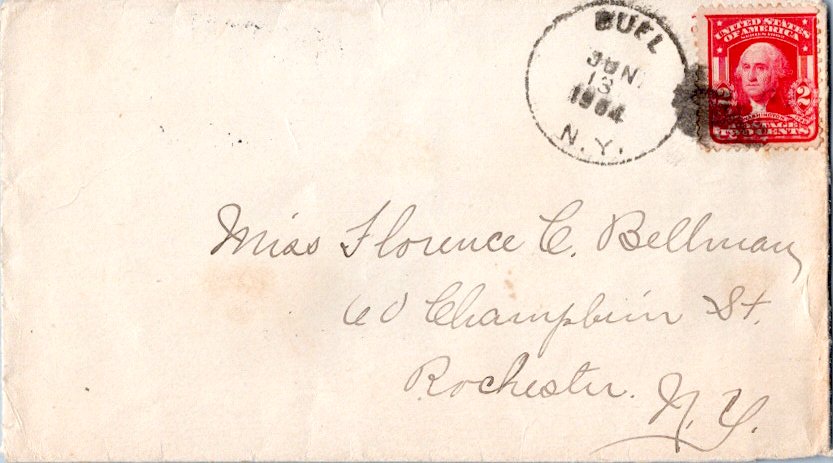 BUEL
JUN
13
1904
N.Y.
UNITED STATES
OF AMERICA
SERIES 1902
2
WASHINGTON
POSTAGE
TWO CENTS
Miss Florence C. Bellman,
60 Champlain St.
Rochester. N.Y.